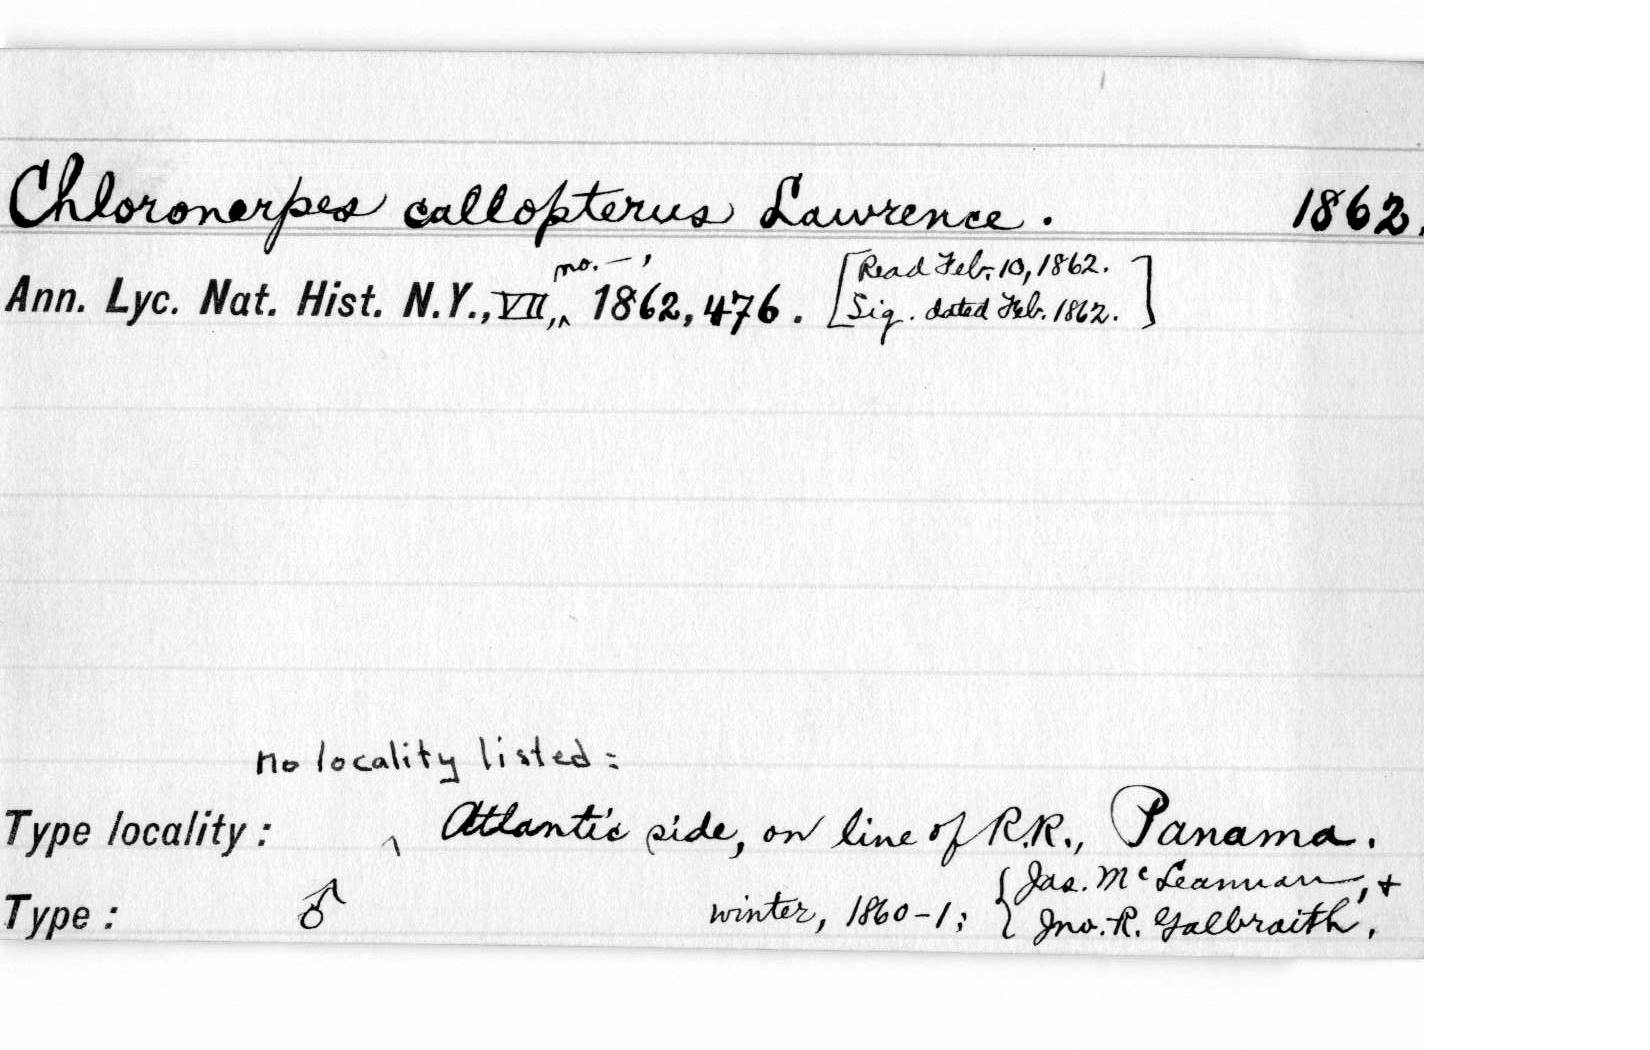 Chloronerpes callopterus Lawrence. 1862.
no. —,
Ann. Lyc. Nat. Hist. N.Y., VII,, ‸ 1862, 476. [Read Feb. 10, 1862.
Sig. dated Feb. 1862.]
no locality listed:
Type locality: ‸ Atlantic side, on line of R.R., Panama.
Type: ♂ winter, 1860-1; {Jas. McLeannan, +
Jno. R. Galbraith.